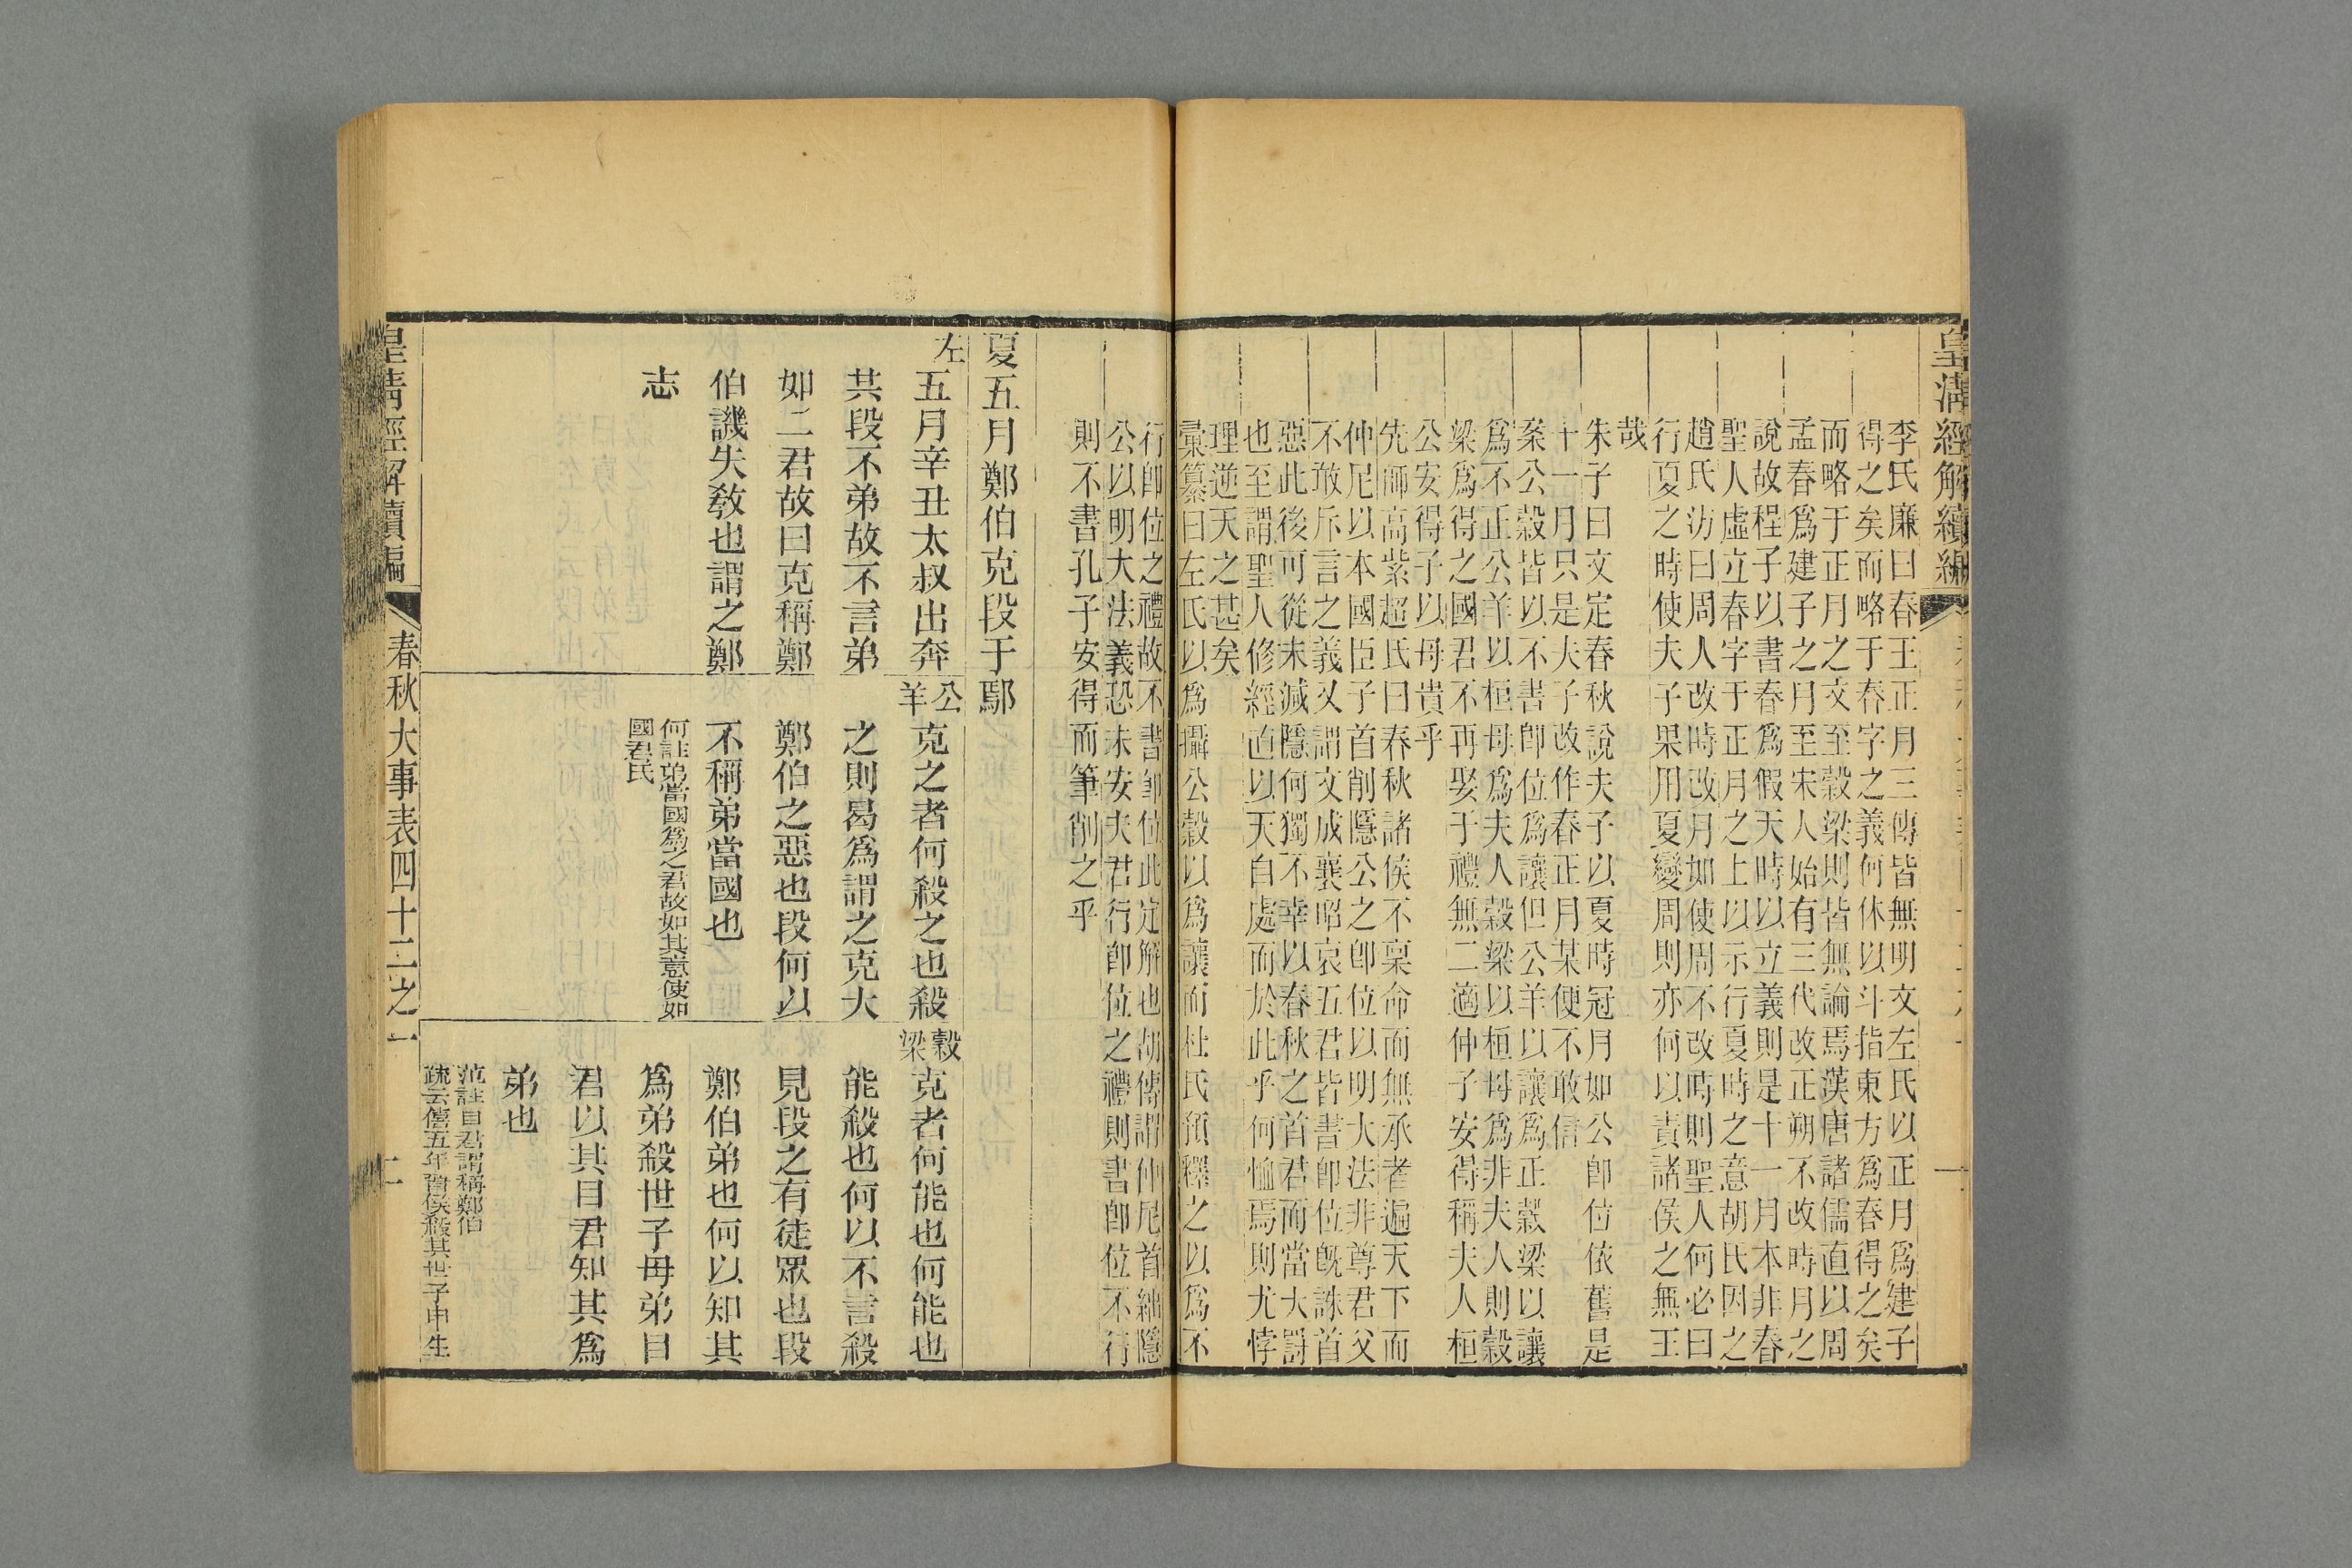 皇清經解續編
李氏廉曰春王正月三傳皆無明文左氏以正月爲建子
得之矣而略于春字之義何休以斗指東方爲春得之矣
而略于正月之文至穀梁則皆無論焉漢唐諸儒直以周
孟春爲建子之月至宋人始有三代改正朔不改時月之
說故程子以書春爲假天時以立義則是十一月本非春
聖人虛立春字于正月之上以示行夏時之意胡氏因之
趙氏汸曰周人改時改月如使周不改時則聖人何必曰
行夏之時使夫子果用夏變周則亦何以責諸侯之無王
哉
朱子曰文定春秋說夫子以夏時冠月如公卽位依舊是
十一月只是夫子改作春正月某便不敢信
案公穀皆以不書卽位爲讓但公羊以讓爲正穀梁以讓
爲不正公羊以桓母爲夫人穀梁以桓母爲非夫人則穀
梁爲得之國君不再娶于禮無二適仲子安得稱夫人桓
公安得子以母貴乎
先師高紫超氏曰春秋諸侯不稟命而無承者遍天下而
仲尼以本國臣子首削隱公之卽位以明大法非尊君父
不敢斥言之義又謂文成襄昭哀五君皆書卽位旣誅首
惡此後可從末減隱何獨不幸以春秋之首君而當大罸
也至謂聖人修經直以天自處而於此乎何恤焉則尤悖
理逆天之甚矣
彙纂曰左氏以爲攝公穀以爲讓而杜氏預釋之以爲不
行卽位之禮故不書卽位此定解也胡傳謂仲尼首絀隱
公以明大法義恐未安夫君行卽位之禮則書卽位不行
則不書孔子安得而筆削之乎
夏五月鄭伯克段于鄢
左
五月辛丑太叔出奔
共段不弟故不言弟
如二君故曰克稱鄭
伯譏失教也謂之鄭
志
公羊
克之者何殺之也殺
之則曷爲謂之克大
鄭伯之惡也段何以
不稱弟當國也
何註弟當國爲之君故如其意使如
國君氏
穀梁
克者何能也何能也
能殺也何以不言殺
見段之有徒眾也段
鄭伯弟也何以知其
爲弟殺世子母弟目
君以其目君知其爲
弟也
范註目君謂稱鄭伯
疏云僖五年晉侯殺其世子申生
皇清經解續編
春秋大事表四十二之一
二